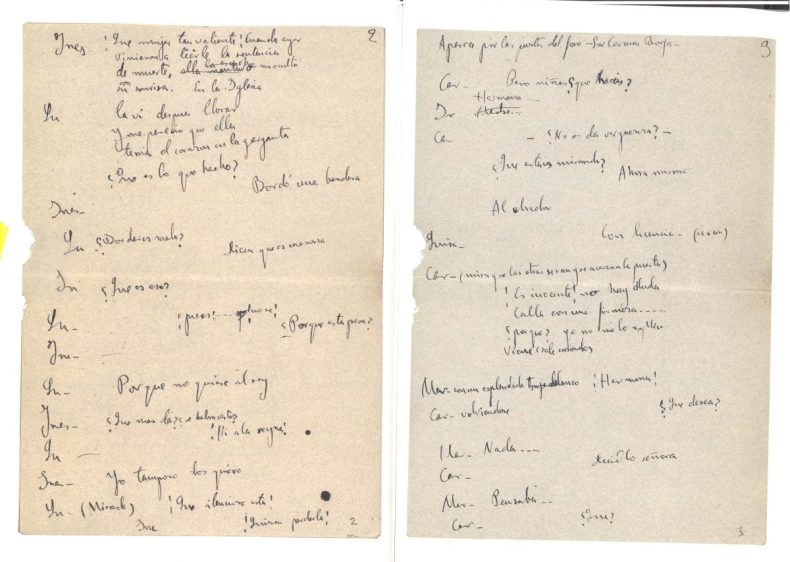 2
Ines. ¡Que mujer tan valiente! Cuando ayer
vinieron a leerle la sentencia
de muerte, no oculto
su sonrisa. En la Iglesia
Lu la vi despues llorar
Y me parecio que ella
tenia el corazon en la garganta
¿Que es lo que hecho?
Bordó una bandera
Ines-
Lu ¿Bordar es malo?
dicen que es masona
In ¿Que es eso?
Lu- ¡pues!...
¿Porque esta presa?
Ine-
Lu- Porque no quiere al rey
Ines- ¿Que mas da?
¡Ni a la reyna!
Lu
Ines- Yo tampoco los quiero
Lu- (Mirando) ¡Que
Ine
2
3
Aparece por las puertas del foro - Sor Carmen Borja-
Car- Pero niñas ¿que haceis?
Hermana...
In
Ca- - ¿No os da verguenza? -
¿Que estais mirando?
Ahora mismo
Al obrador
Con licencia-
Car- (mira que las otras se van y se acerca a la puerta)
¡Es inocente! no hay duda
¡Calla con una firmeza.....
¿porque? yo no me lo explico
Viene (sale
Mar- con un esplendido traje blanco ¡Hermana!
Car- volviendose
¿Que desea?
Mar- Nada...
señora
Car-
Mar- Pensaba..
Car- ¿Que?
3